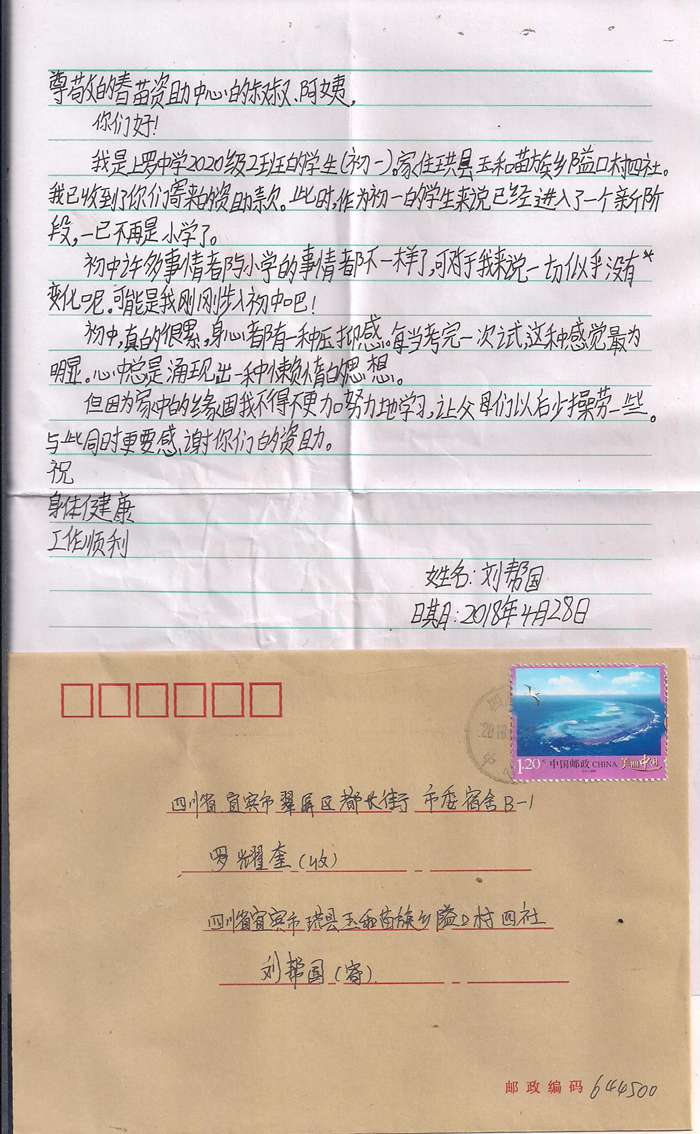 尊敬的春苗资助中心的叔叔、阿姨,
你们好!
我是上罗中学2020级2班的学生(初一)。家住珙县玉和苗族乡隘口村四社。
我已收到了你们寄来的资助款。此时,作为初一的学生来说已经进入了一个新阶
段,一已不再是小学了。
初中许多事情都与小学的事情都不一样了,可对于我来说一切似乎没有
变化呢。可能是我刚刚步入初中吧!
初中,真的很累,身心都有一种压抑感。每当考完一次试,这种感觉最为
明显。心中总是涌现出一种懒惰的思想。
但因为家中的缘因我不得不更加努力地学习,让父母们以后少操劳一些。
与此同时更要感谢你们的资助。
祝
身体健康
工作顺利
姓名:刘帮国
日期:2018年4月28日
1.20元 中国邮政 CHINA 美丽中国
四川省宜宾市翠屏区都长街 市委宿舍B-1
罗耀奎(收)
四川省宜宾市珙县玉和苗族乡隘口村四社
刘帮国(寄)
邮政编码 644500